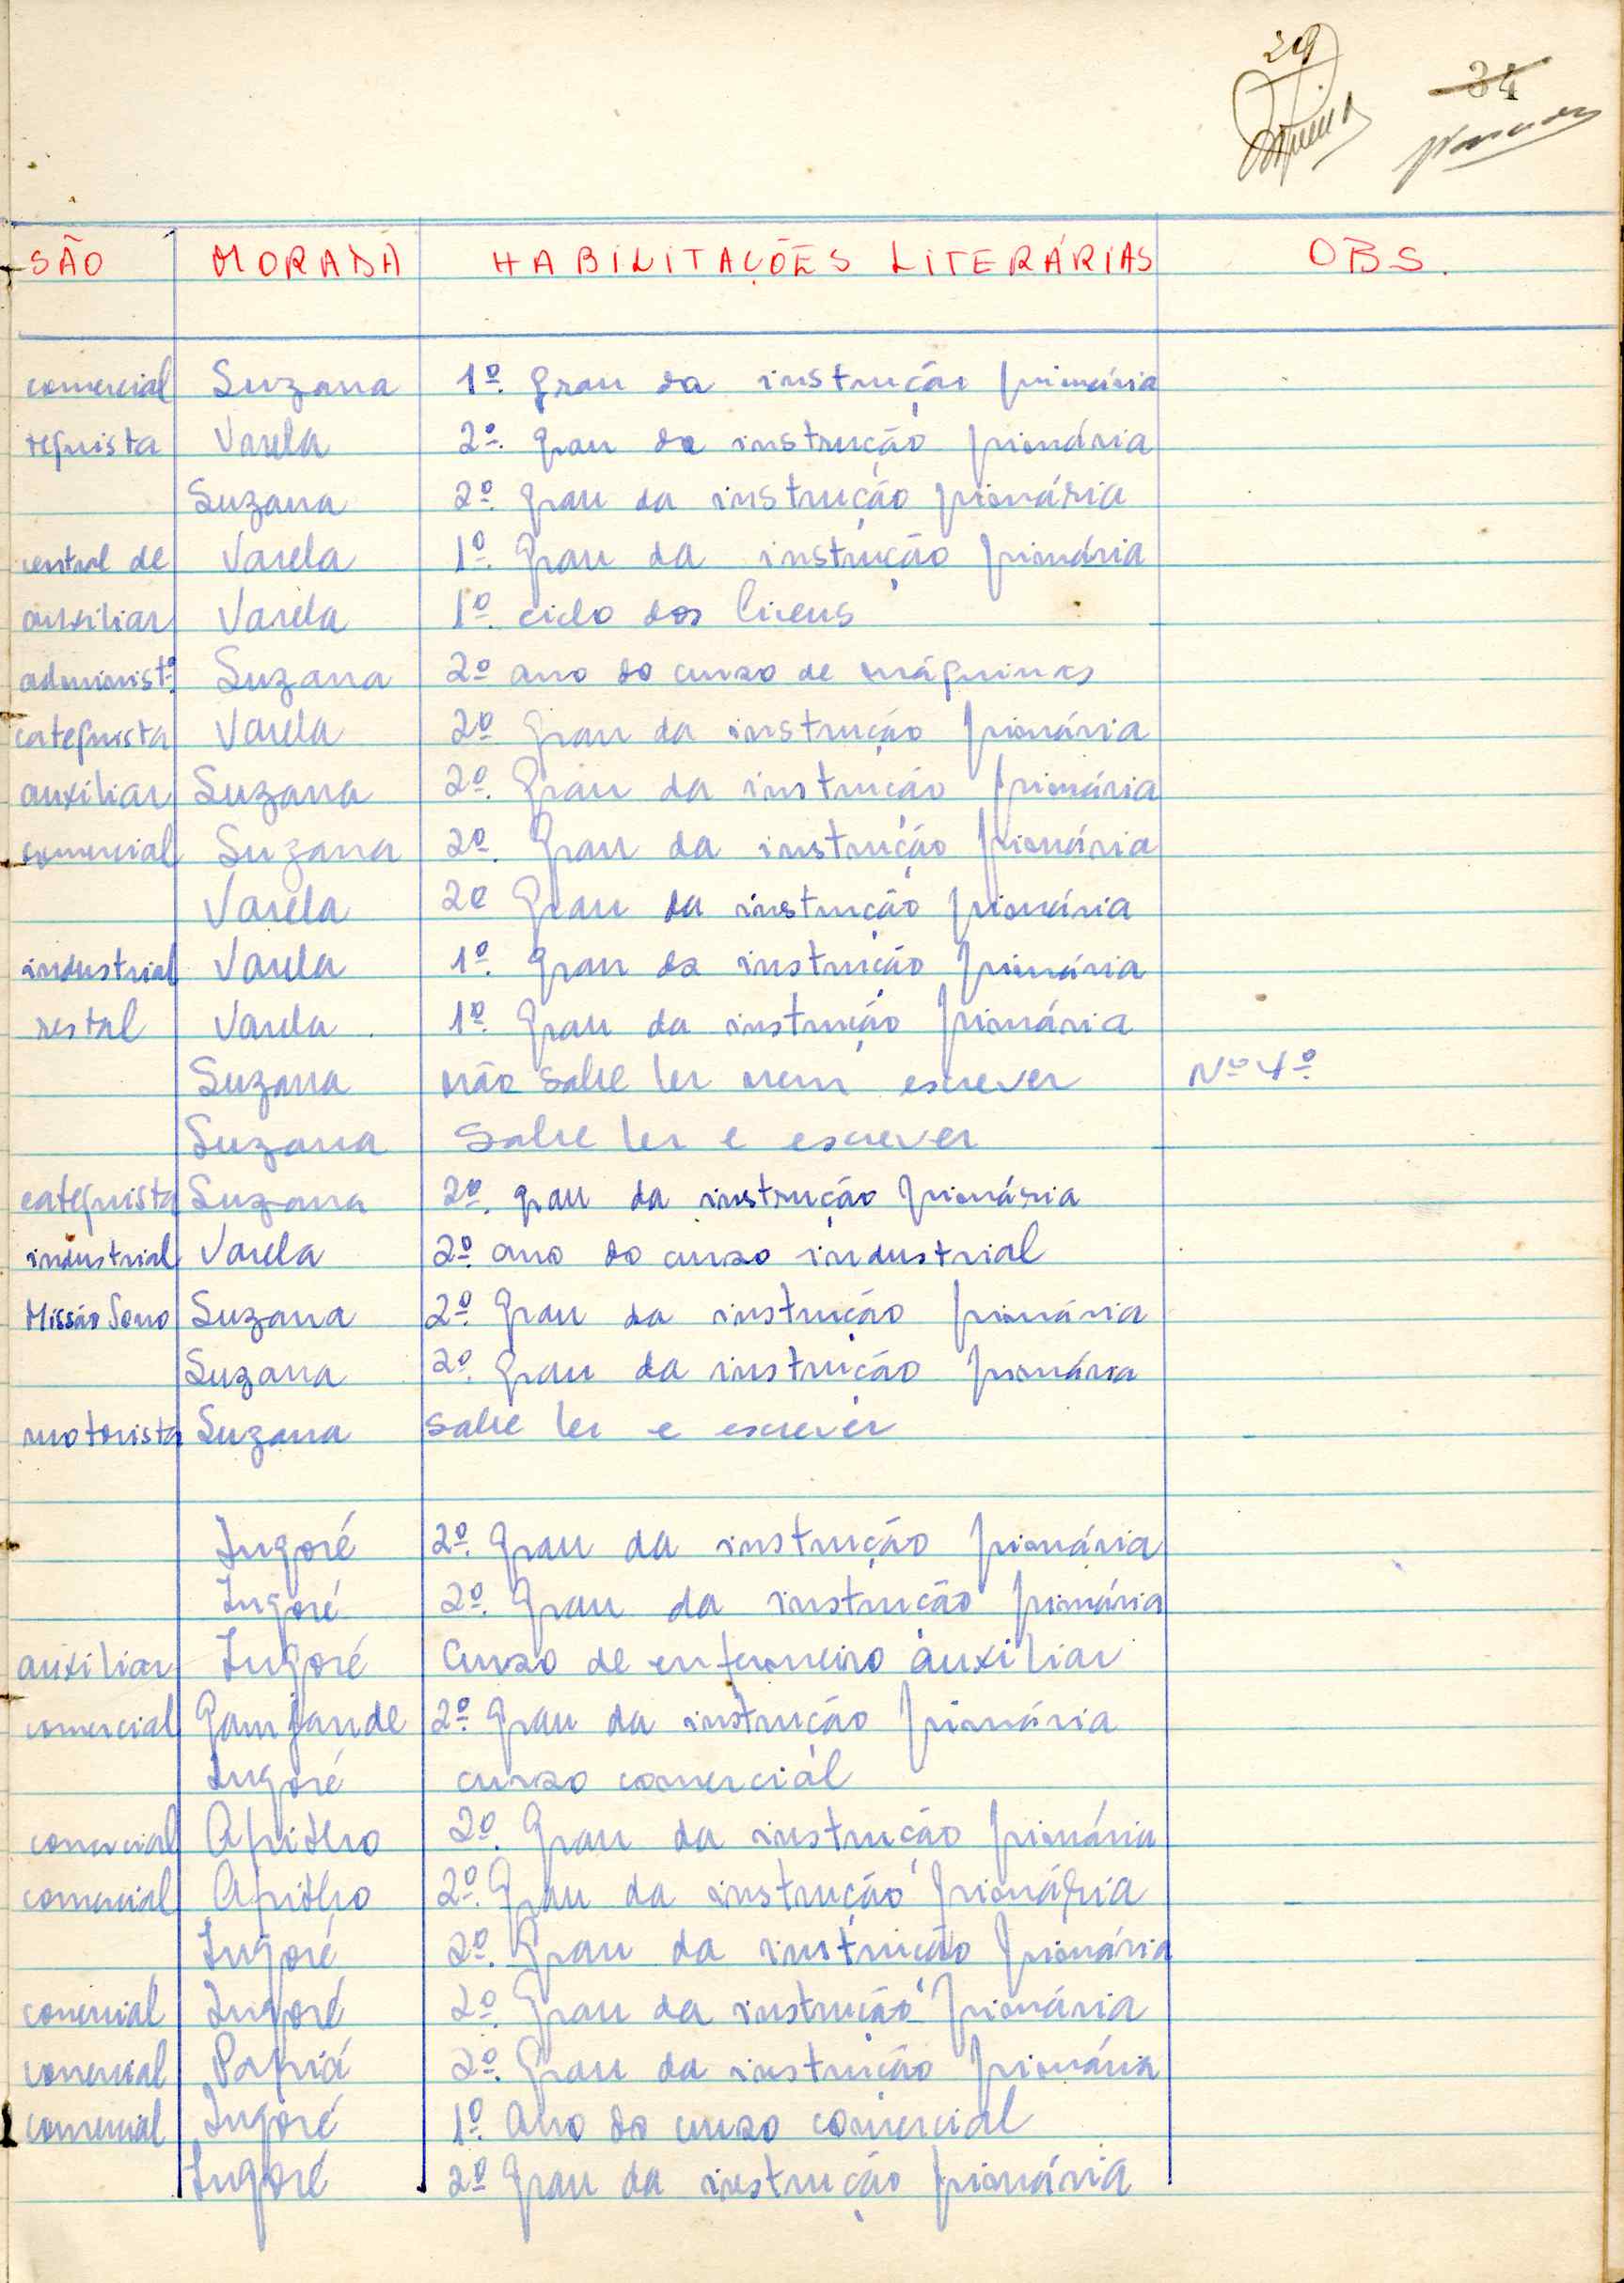 29
34
SÃO MORADA HABILITAÇÕES LITERÁRIAS OBS.
comercial Suzana 1º. grau da instrução primária
tequista Varela 2º. grau da instrução primária
Suzana 2º. grau da instrução primária
central de Varela 1º. Grau da instrução primária
auxiliar Varela 1º. ciclo dos liceus
administº. Suzana 2º ano do curso de máquinas
catequista Varela 2º Grau da instrução primária
auxiliar Suzana 2º. Grau da instrução primária
comercial Suzana 2º. Grau da instrução primária
Varela 2º Grau da instrução primária
industrial Varela 1º. grau da instrução primária
restal Varela 1º. Grau da instrução primária
Suzana não sabe ler nem escrever Nº 4º
Suzana Sabe ler e escrever
catequista Suzana 2º. grau da instrução primária
industrial Varela 2º. ano do curso industrial
Missão Sono Suzana 2º. Grau da instrução primária
Suzana 2º. Grau da instrução primária
motorista Suzana Sabe ler e escrever
Ingoré 2º. Grau da instrução primária
Ingoré 2º. Grau da instrução primária
auxiliar Ingoré Curso de enfermeiro auxiliar
comercial 2º. Grau da instrução primária
Ingoré curso comercial
comercial Apilho 2º. Grau da instrução primária
comercial Apilho 2º. Grau da instrução primária
Ingoré 2º. Grau da instrução primária
comercial Ingoré 2º. Grau da instrução primária
comercial 2º. Grau da instrução primária
comercial Ingoré 1º. Ano do curso comercial
Ingoré 2º Grau da instrução primária